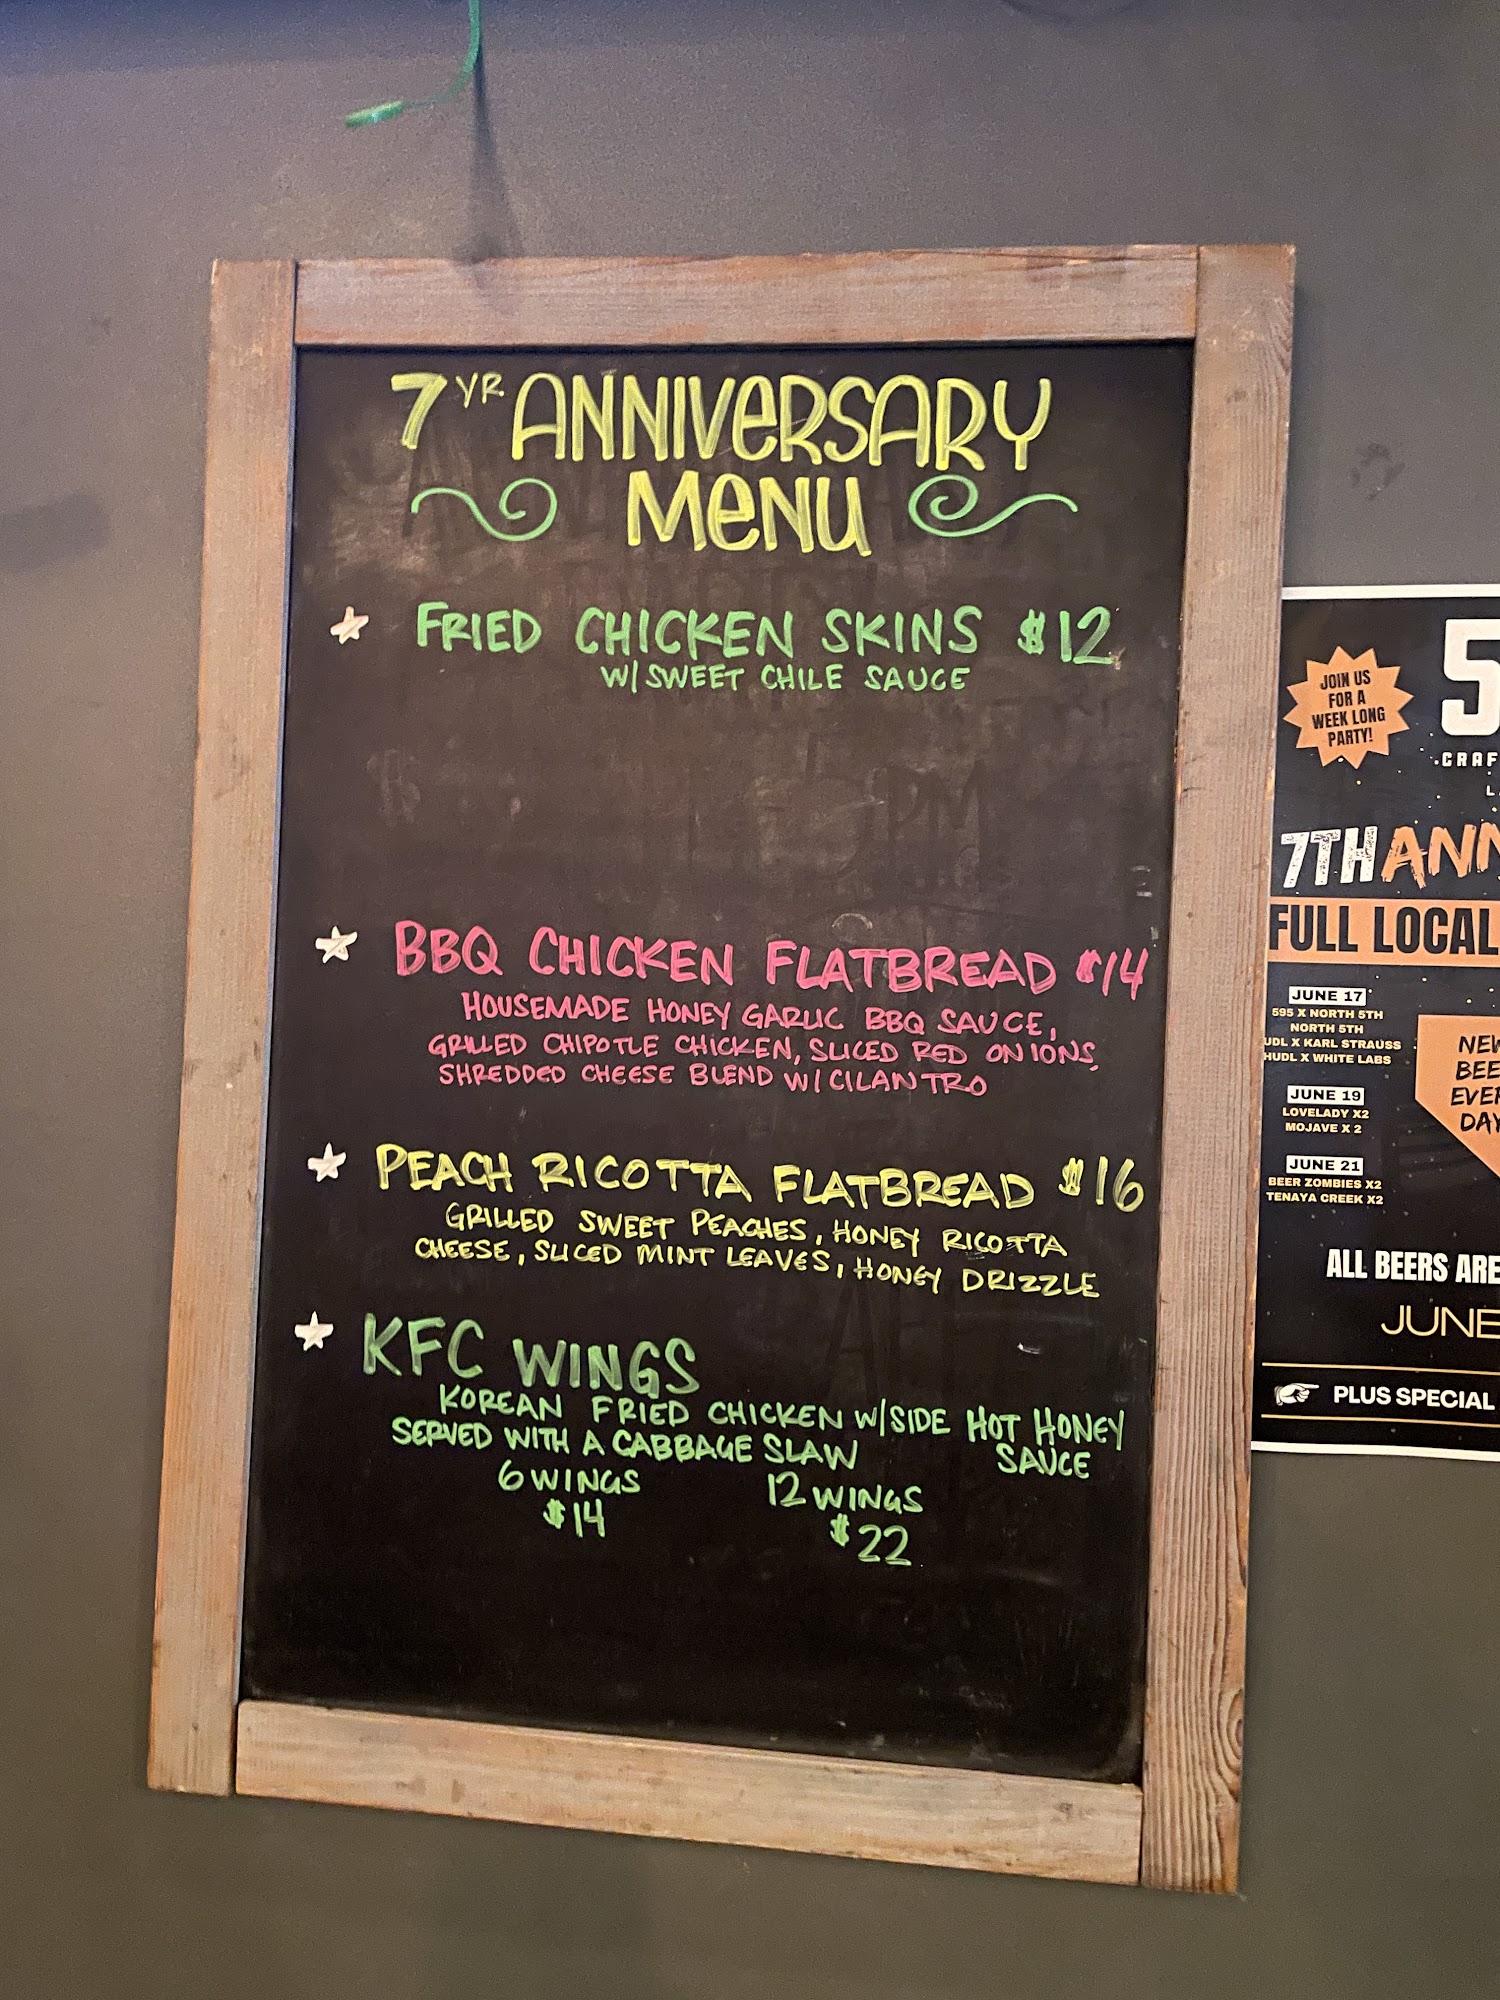 7YR ANNIVERSARY
MENU
FRIED CHICKEN SKINS $12
W/ SWEET CHILE SAUCE
BBQ CHICKEN FLATBREAD $14
HOUSEMADE HONEY GARLIC BBQ SAUCE,
GRILLED CHIPOTLE CHICKEN, SLICED RED ONIONS,
SHREDDED CHEESE BLEND W/ CILANTRO
PEACH RICOTTA FLATBREAD $16
GRILLED SWEET PEACHES, HONEY RICOTTA
CHEESE, SLICED MINT LEAVES, HONEY DRIZZLE
KFC WINGS
KOREAN FRIED CHICKEN W/SIDE HOT HONEY
SERVED WITH A CABBAGE SLAW SAUCE
6 WINGS 12 WINGS
$14 $22
JOIN US
FOR A
WEEK LONG
PARTY!
5
CRAF
7TH ANN
FULL LOCAL
JUNE 17
595 X NORTH 5TH
NORTH 5TH
UDL X KARL STRAUSS
HUDL X WHITE LABS
JUNE 19
LOVELADY X2
MOJAVE X 2
JUNE 21
BEER ZOMBIES X2
TENAYA CREEK X2
NEW
BEE
EVER
DAY
ALL BEERS ARE
JUNE
PLUS SPECIAL